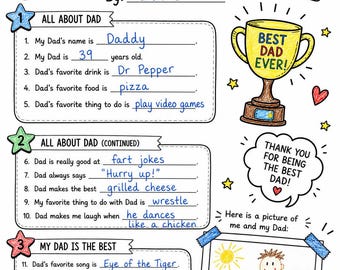 1 ALL ABOUT DAD
1. My Dad's name is Daddy.
2. My Dad is 39 years old.
3. Dad's favorite drink is Dr Pepper.
4. Dad's favorite food is pizza.
5. Dad's favorite thing to do is play video games
BEST
DAD
EVER!
2 ALL ABOUT DAD (CONTINUED)
6. Dad is really good at fart jokes.
7. Dad always says "Hurry up!"
8. Dad makes the best grilled cheese.
9. My favorite thing to do with Dad is wrestle.
10. Dad makes me laugh when he dances
like a chicken.
THANK YOU
FOR BEING
THE BEST
DAD!
Here is a picture of
me and my Dad:
3 MY DAD IS THE BEST
11. Dad's favorite song is Eye of the Tiger.